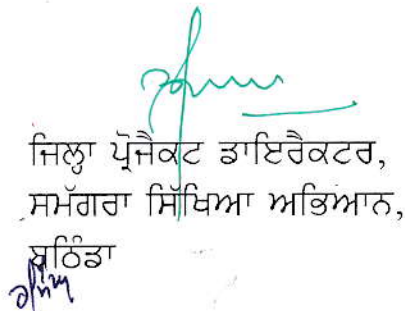 ਜਿਲ੍ਹਾ ਪ੍ਰੋਜੈਕਟ ਡਾਇਰੈਕਟਰ,
ਸਮੱਗਰਾ ਸਿੱਖਿਆ ਅਭਿਆਨ,
ਬਠਿੰਡਾ